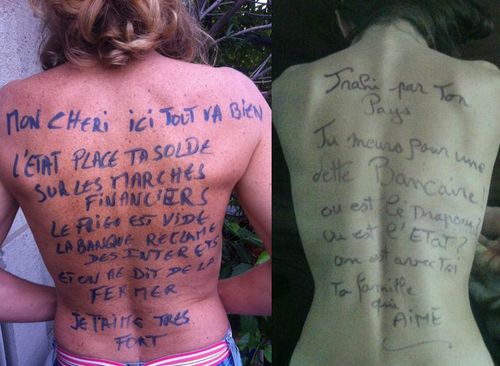 MON CHERI ici TOUT VA BIEN
L'ETAT PLACE TA SOLDE
SUR LES MARCHES
FINANCIERS
LE FRIGO EST VIDE
LA BANQUE RECLAME
DES INTERETS
ET ON ME DIT DE LA
FERMER
JE T'AIME TRES
FORT
Trahi par Ton
Pays
Tu meurs pour une
dette Bancaire!
ou est le Drapeau?
ou est l'ETAT?
on est avec Toi
Ta famille
qui
AIME